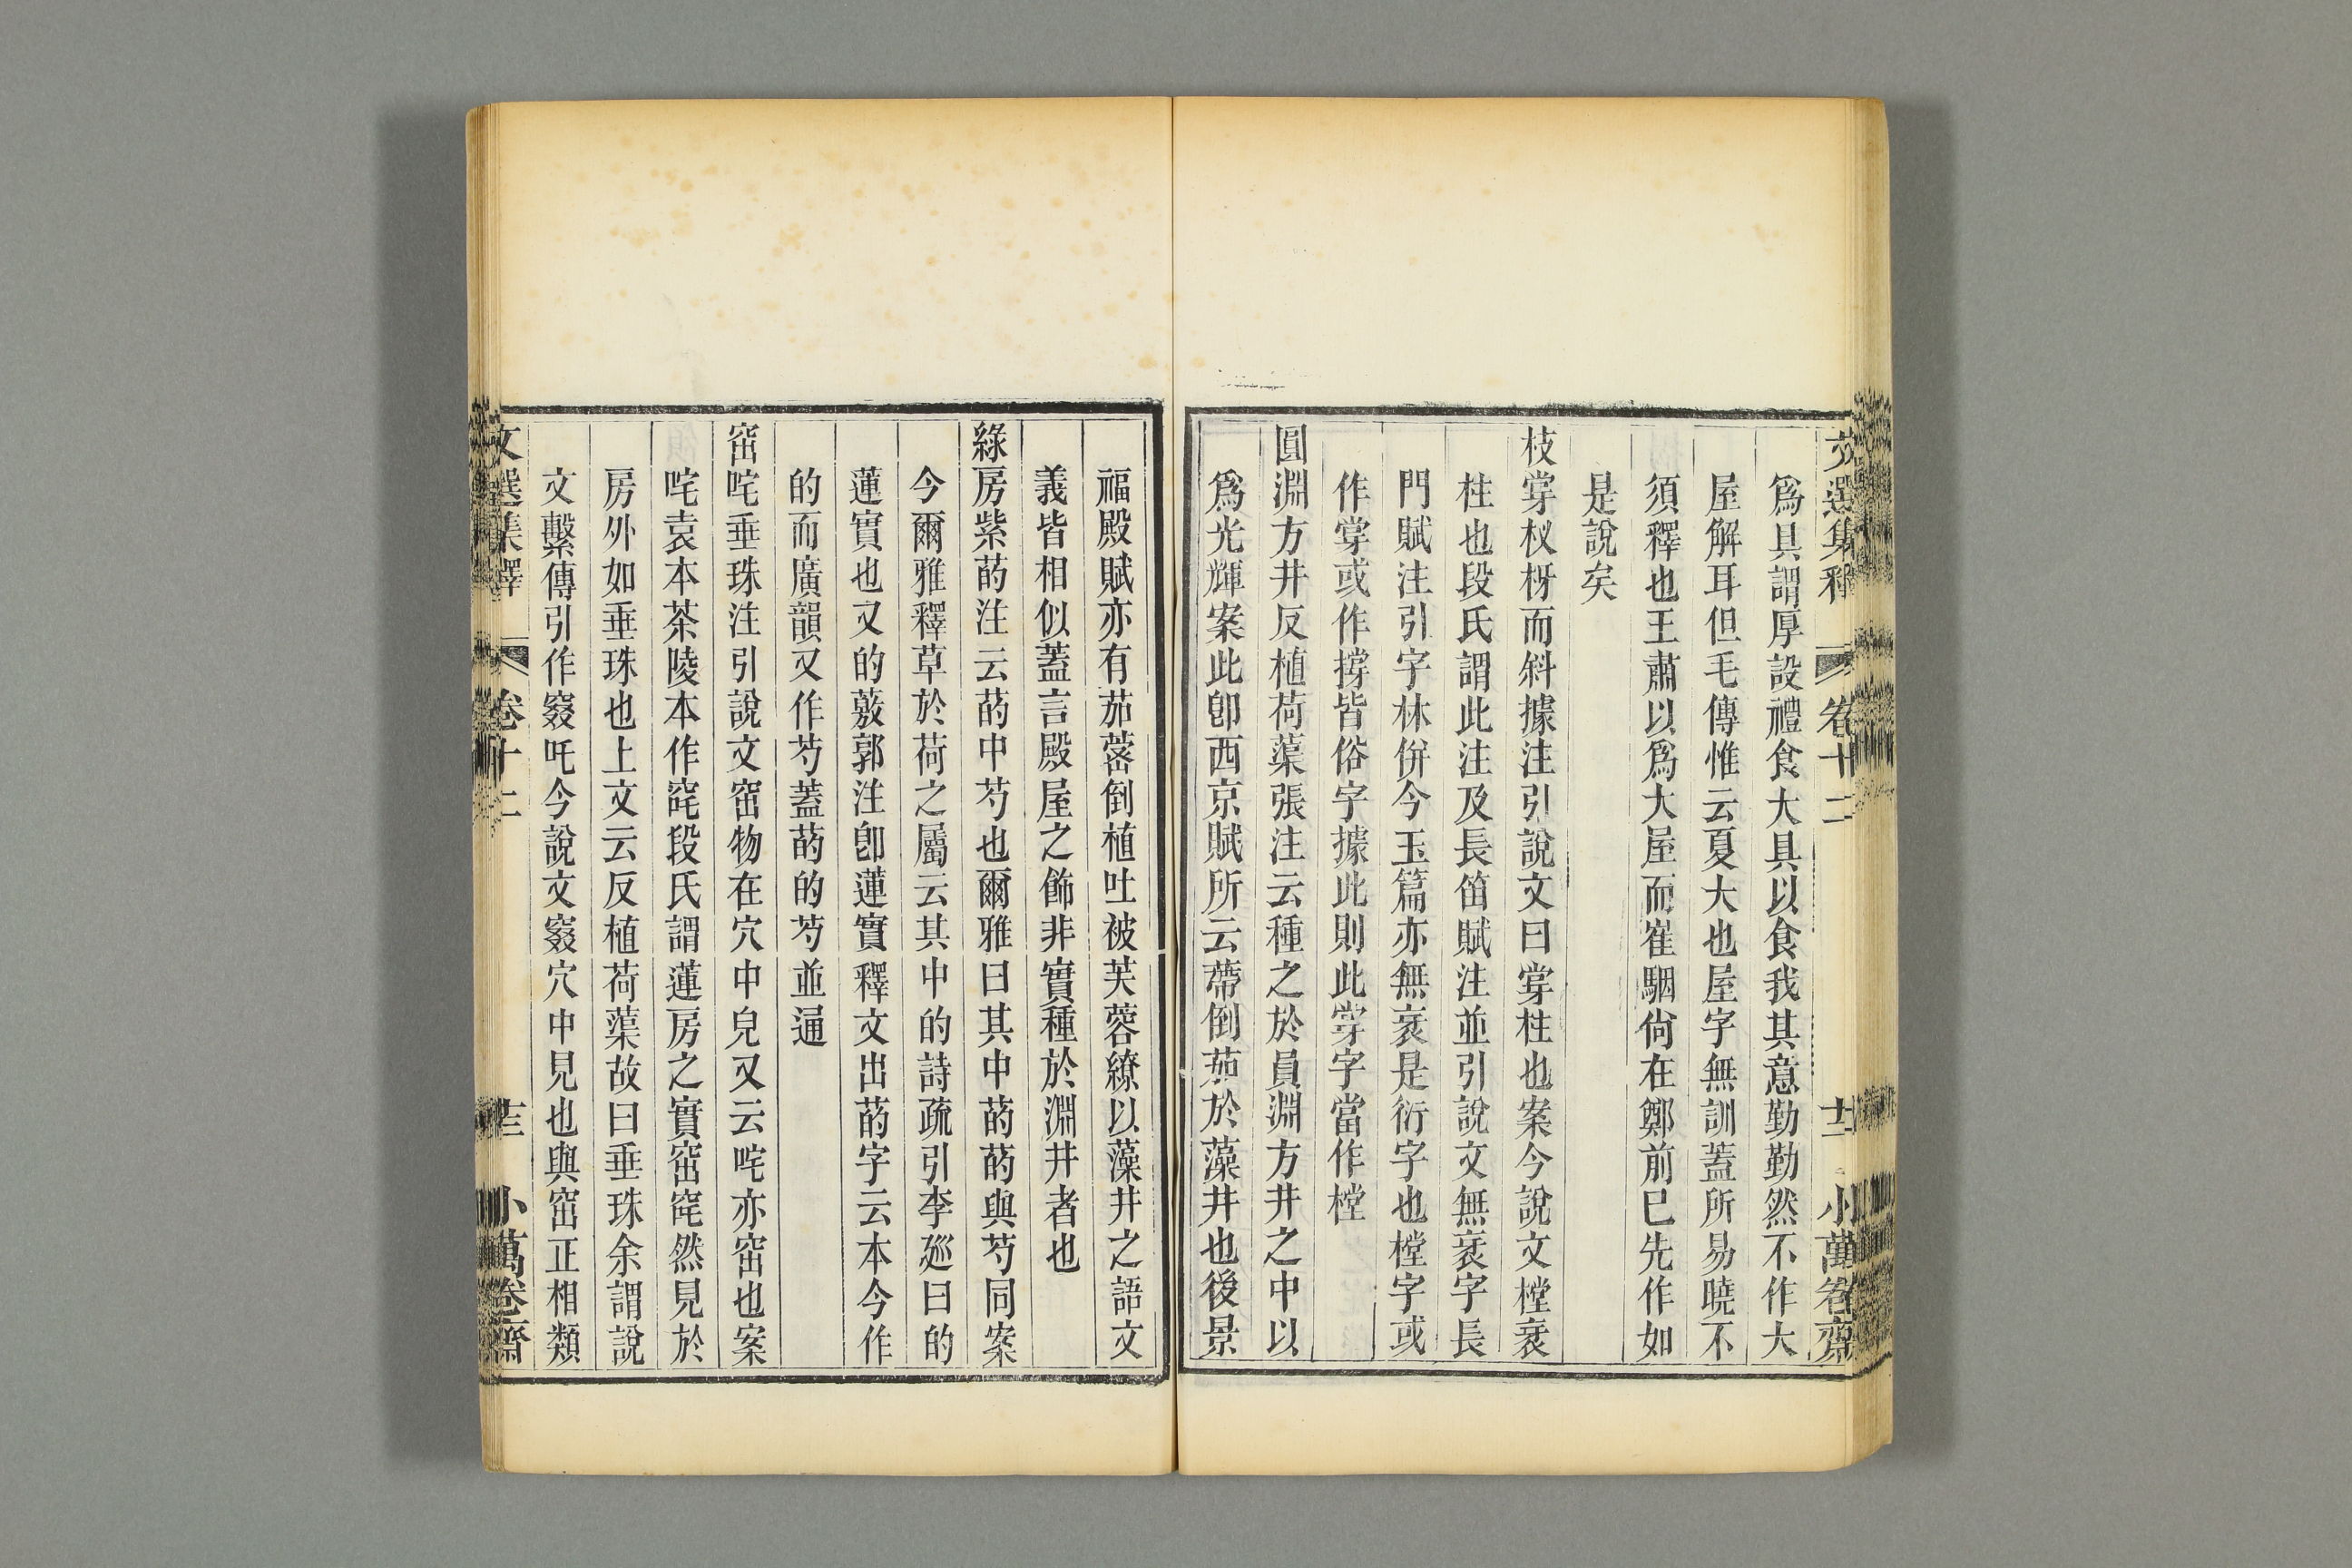 文選集釋 卷十二 十二 小萬卷齋
爲具謂厚設禮食大具以食我其意勤勤然不作大
屋解耳但毛傳惟云夏大也屋字無訓蓋所易曉不
須釋也王肅以爲大屋而崔駰尙在鄭前已先作如
是說矣
枝牚杈枒而斜據注引說文曰牚柱也案今說文樘衺
柱也段氏謂此注及長笛賦注並引說文無衺字長
門賦注引字林併今玉篇亦無衺是衍字也樘字或
作牚或作撐皆俗字據此則此牚字當作樘
圓淵方井反植荷蕖張注云種之於員淵方井之中以
爲光輝案此卽西京賦所云蔕倒茄於藻井也後景
福殿賦亦有茄蔤倒植吐被芙蓉繚以藻井之語文
義皆相似蓋言殿屋之飾非實種於淵井者也
綠房紫菂注云菂中芍也爾雅曰其中菂菂與芍同案
今爾雅釋草於荷之屬云其中的詩疏引李廵曰的
蓮實也又的薂郭注卽蓮實釋文出菂字云本今作
的而廣韻又作芍蓋菂的芍並通
窋咤垂珠注引說文窋物在穴中皃又云咤亦窋也案
咤袁本茶陵本作窀段氏謂蓮房之實窋窀然見於
房外如垂珠也上文云反植荷蕖故曰垂珠余謂說
文繫傳引作窡吒今說文窡穴中見也與窋正相類
文選集釋 卷十二 十三 小萬卷齋